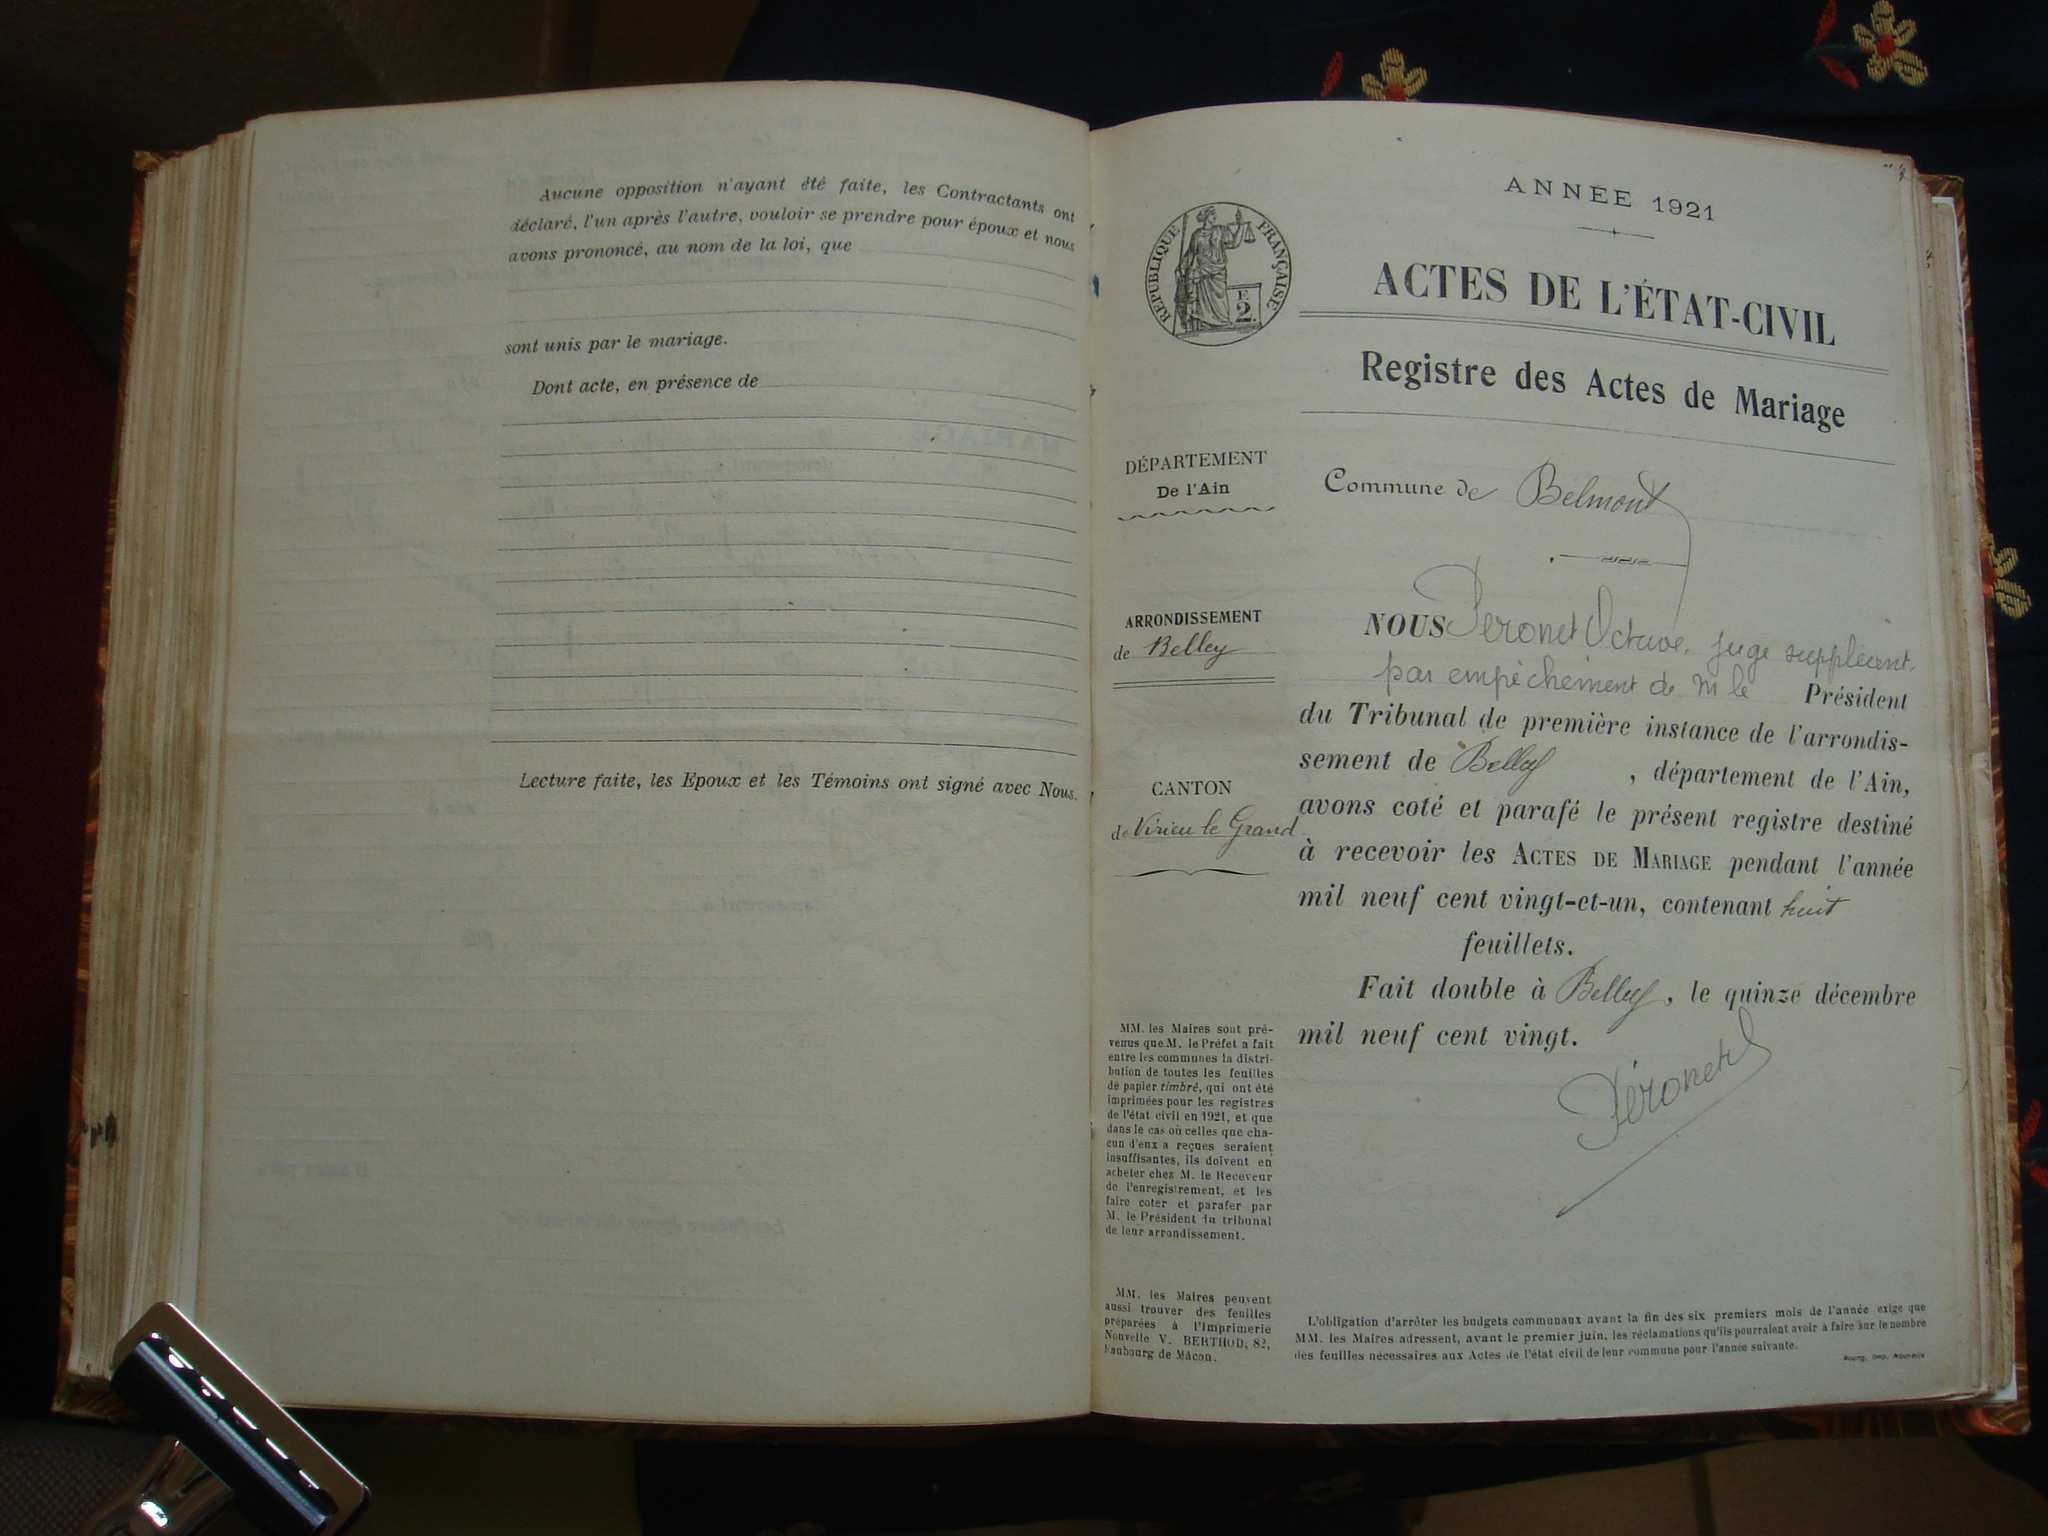 Aucune opposition n'ayant été faite, les Contractants ont
déclaré, l'un après l'autre, vouloir se prendre pour époux et nous
avons prononcé, au nom de la loi, que
sont unis par le mariage.
Dont acte, en présence de
Lecture faite, les Epoux et les Témoins ont signé avec Nous.
ANNÉE 1921
RÉPUBLIQUE FRANÇAISE
E
2.
ACTES DE L'ÉTAT-CIVIL
Registre des Actes de Mariage
DÉPARTEMENT
De l'Ain
Commune de Belmont
ARRONDISSEMENT
de Belley
CANTON
de Virieu le Grand
NOUS Péronet Octave, juge suppléant
par empêchement de M le Président
du Tribunal de première instance de l'arrondis-
sement de Belley, département de l'Ain,
avons coté et parafé le présent registre destiné
à recevoir les ACTES DE MARIAGE pendant l'année
mil neuf cent vingt-et-un, contenant huit
feuillets.
Fait double à Belley, le quinze décembre
mil neuf cent vingt.
Péronet
MM. les Maires sont pré-
venus que M. le Préfet a fait
entre les communes la distri-
bution de toutes les feuilles
de papier timbré, qui ont été
imprimées pour les registres
de l'état civil en 1921, et que
dans le cas où celles que cha-
cun d'eux a reçues seraient
insuffisantes, ils doivent en
acheter chez M. le Receveur
de l'enregistrement, et les
faire coter et parafer par
M. le Président du tribunal
de leur arrondissement.
MM. les Maires peuvent
aussi trouver des feuilles
préparées à l'Imprimerie
Nouvelle V. BERTHOD, 82,
Faubourg de Mâcon.
L'obligation d'arrêter les budgets communaux avant la fin des six premiers mois de l'année exige que
MM. les Maires adressent, avant le premier juin, les réclamations qu'ils pourraient avoir à faire sur le nombre
des feuilles nécessaires aux Actes de l'état civil de leur commune pour l'année suivante.
Bourg, Imp. Nouvelle